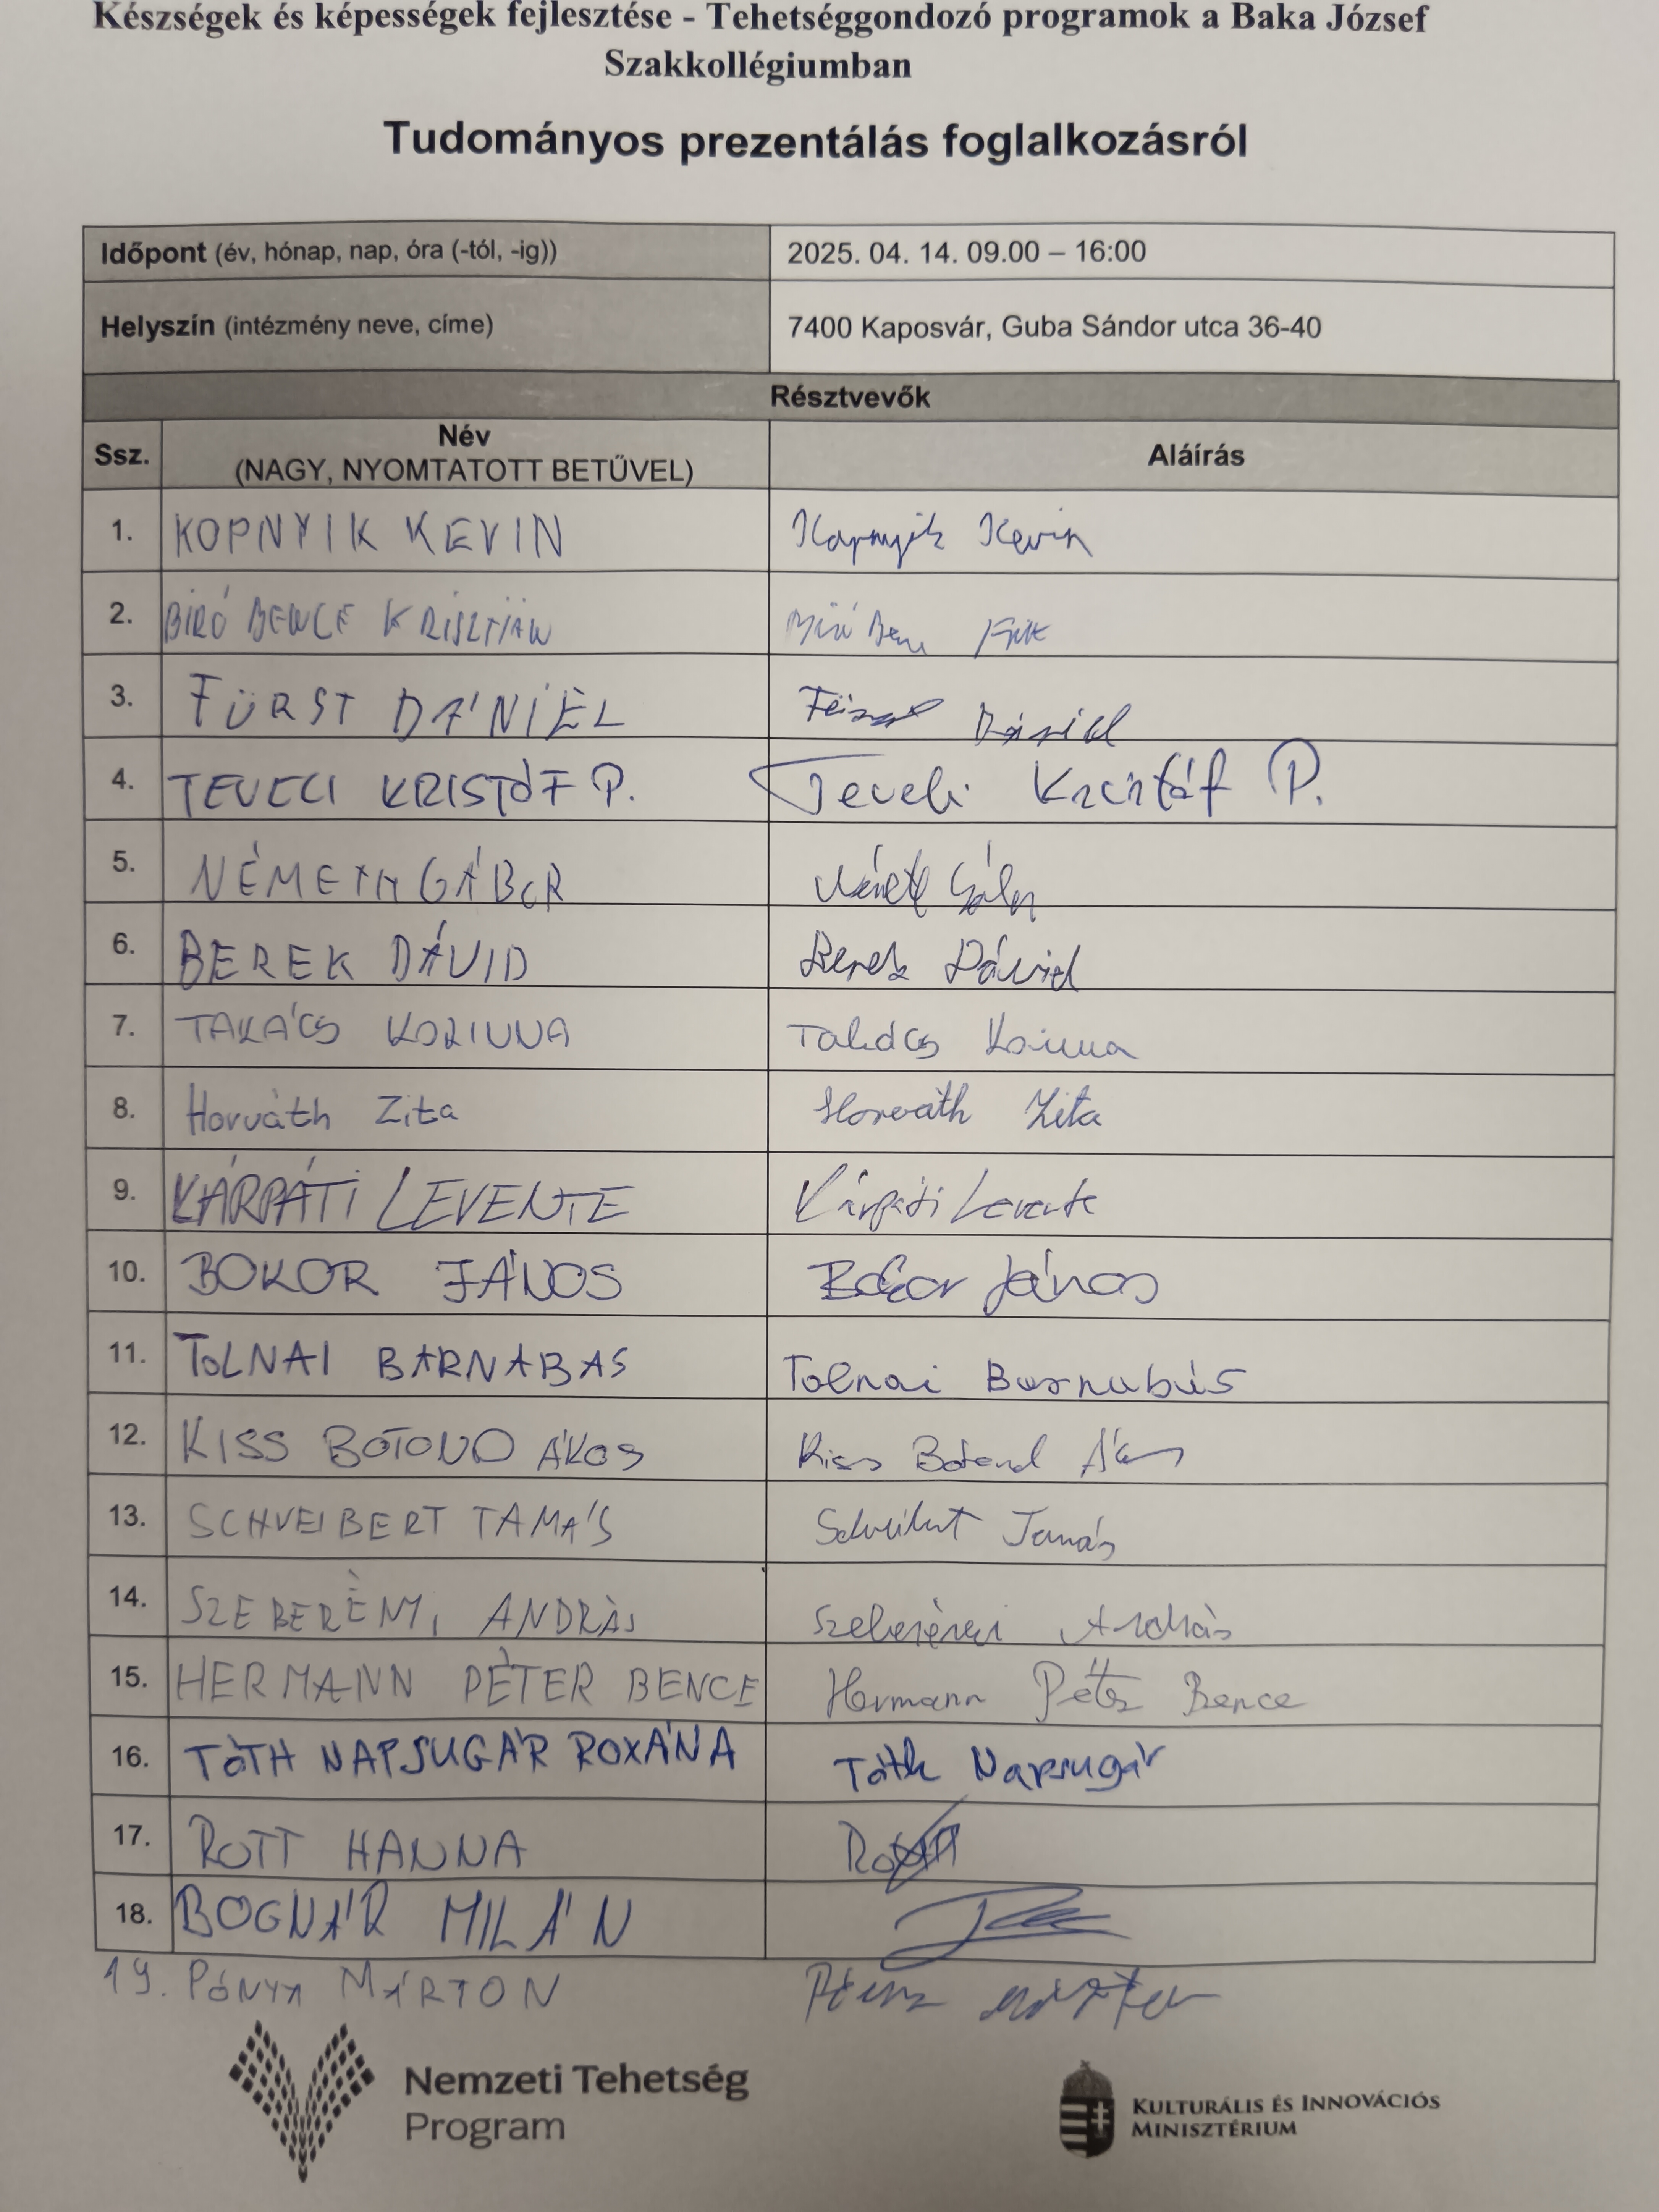 Készségek és képességek fejlesztése - Tehetséggondozó programok a Baka József
Szakkollégiumban
Tudományos prezentálás foglalkozásról
Időpont (év, hónap, nap, óra (-tól, -ig)) 2025. 04. 14. 09.00 – 16:00
Helyszín (intézmény neve, címe) 7400 Kaposvár, Guba Sándor utca 36-40
Résztvevők
Ssz. Név (NAGY, NYOMTATOTT BETŰVEL) Aláírás
1. KOPNYIK KEVIN Kopnyik Kevin
2. BIRÓ BENCE KRISZTIÁN
3. FÜRST DÁNIEL Fürst Dániel
4. TEVELI KRISTÓF P. Teveli Kristóf P.
5. NÉMETH GÁBOR Németh Gábor
6. BEREK DÁVID Berek Dávid
7. TAKÁCS KORINNA Takács Korinna
8. Horváth Zita Horváth Zita
9. KÁRPÁTI LEVENTE Kárpáti Levente
10. BOKOR JÁNOS Bokor János
11. TOLNAI BARNABAS Tolnai Barnabás
12. KISS BOTOND ÁKOS Kiss Botond Ákos
13. SCHVEIBERT TAMÁS Schveibert Tamás
14. SZEBERÉNYI ANDRÁS Szeberényi András
15. HERMANN PÉTER BENCE Hermann Péter Bence
16. TÓTH NAPSUGÁR ROXÁNA Tóth Napsugár
17. ROTT HANNA
18. BOGNÁR MILÁN
19. PÓNYA MÁRTON
Nemzeti Tehetség
Program
KULTURÁLIS ÉS INNOVÁCIÓS
MINISZTÉRIUM